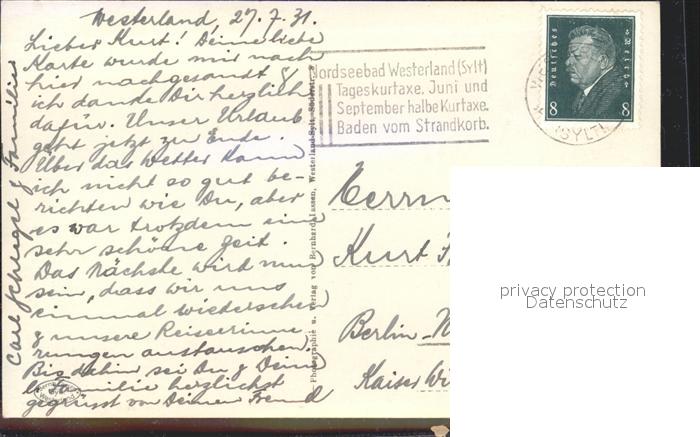 Westerland, 27.7.31.
Lieber Kurt! Deine liebe
Karte wurde mir nach
hier nachgesandt &
ich danke Dir herzlich
dafür. Unser Urlaub
geht jetzt zu Ende.
Über das Wetter kann
ich nicht so gut be-
richten wie Du, aber
es war trotzdem eine
sehr schöne Zeit.
Das Nächste wird nun
sein, dass wir uns
einmal wiedersehen
& unsere Reiseerinne
rungen austauschen.
Bis dahin sei Du & Deine
lb. Familie herzlichst
gegrüsst von Deinem Freund
Carl & Familie
Nordseebad Westerland (Sylt)
Tageskurtaxe, Juni und
September halbe Kurtaxe.
Baden vom Strandkorb.
Deutsches Reich
8 8
(SYLT)
Photographie u. Verlag von Bernhard Lassen, Westerland-Sylt
Herrn
Kurt
Berlin-
Kaiser Wi
privacy protection
Datenschutz